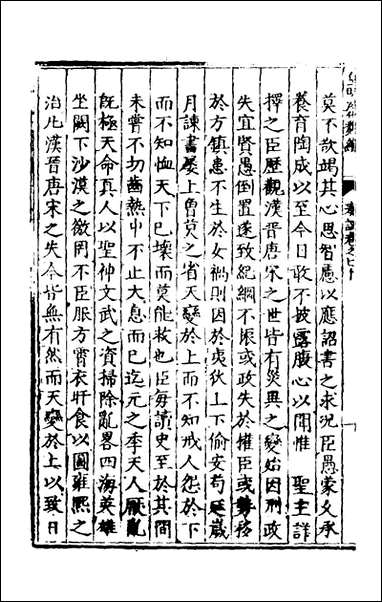 莫不欲竭其心思智慮以應詔書之求況臣愚蒙久承
養育陶成以至今日敢不披露腹心以聞惟　聖主詳
擇之臣歷觀漢晉唐宋之世皆有災異之變始因刑政
失宜賢愚倒置遂致紀綱不振或政失於權臣或勢移
於方鎮患不生於女禍則因於夷狄上下偷安苟延歲
月諫書屡上曽莫之省天變於上而不知戒人怨於下
而不知恤天下已壞而莫能救也臣每讀史至於其間
未嘗不切齒熱中不止大息而已迄元之季天人厭亂
既極天命真人以聖神文武之資掃除亂畧四海英雄
坐闕下沙漠之徼罔不臣服方宵衣旰食以圖雍熙之
治凡漢晉唐宋之失今皆無有然而天變於上以致日